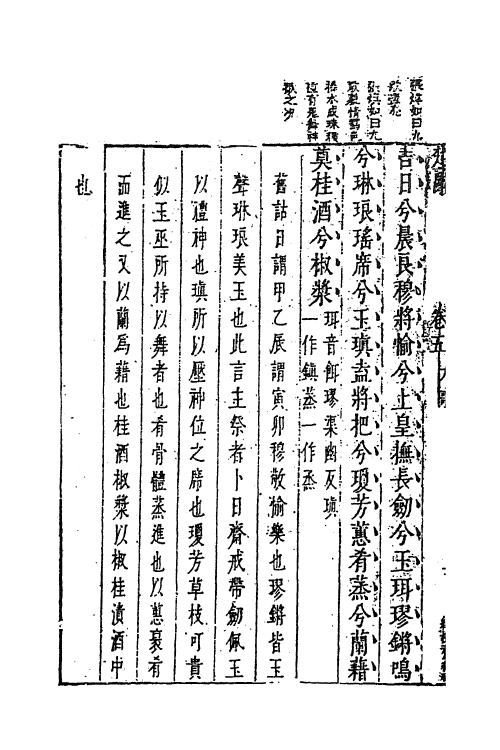 吉日兮辰良穆將愉兮上皇撫長劒兮玉珥璆鏘鳴
兮琳琅瑤席兮玉瑱盍將把兮瓊芳蕙肴蒸兮蘭藉
奠桂酒兮椒漿
珥音餌璆渠幽反瑱
一作鎮蒸一作烝
舊詁日謂甲乙辰謂寅卯穆敬愉樂也璆鏘皆玉
聲琳琅美玉也此言主祭者卜日齋戒帶劒佩玉
以禮神也瑱所以壓神位之席也瓊芳草枝可貴
似玉巫所持以舞者也肴骨體蒸進也以蕙裹肴
而進之又以蘭爲藉也桂酒椒漿以椒桂漬酒中
也
卷五